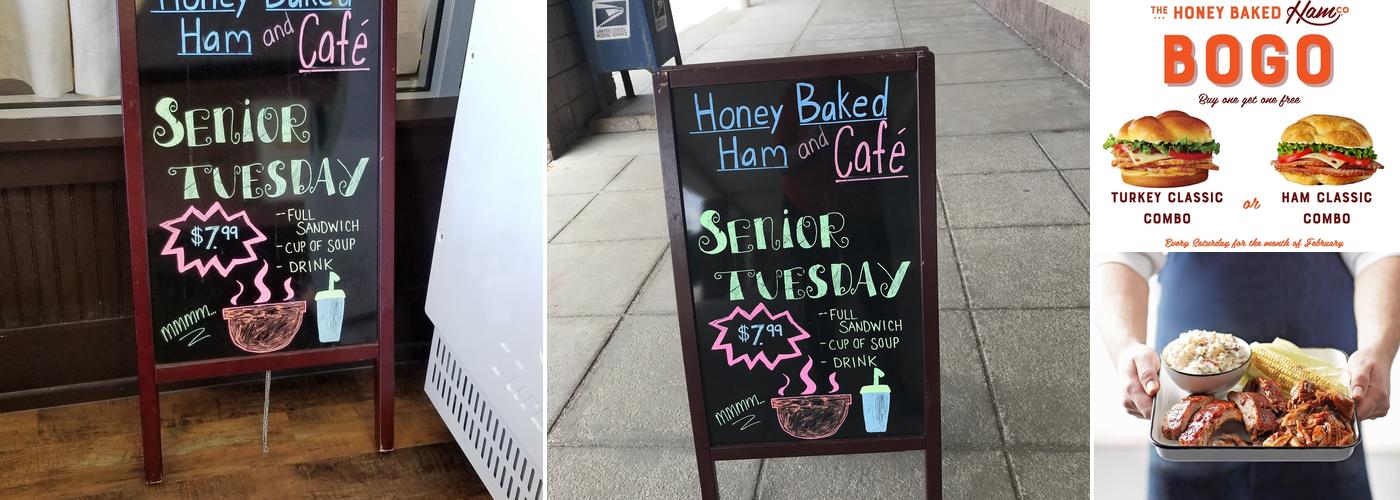 Honey Baked
Ham and Café
SENiOR
TUESDAY
$7.99
--FULL
SANDWICH
-CUP OF SOUP
- DRINK
mmmm...
UNITED STATES
POSTAL SERVICE
Honey Baked
Ham and Café
SENiOR
TUESDAY
$7.99
--FULL
SANDWICH
-CUP OF SOUP
- DRINK
mmmm...
THE HONEY BAKED Ham CO
BOGO
Buy one get one free
TURKEY CLASSIC
COMBO
or
HAM CLASSIC
COMBO
Every Saturday for the month of February